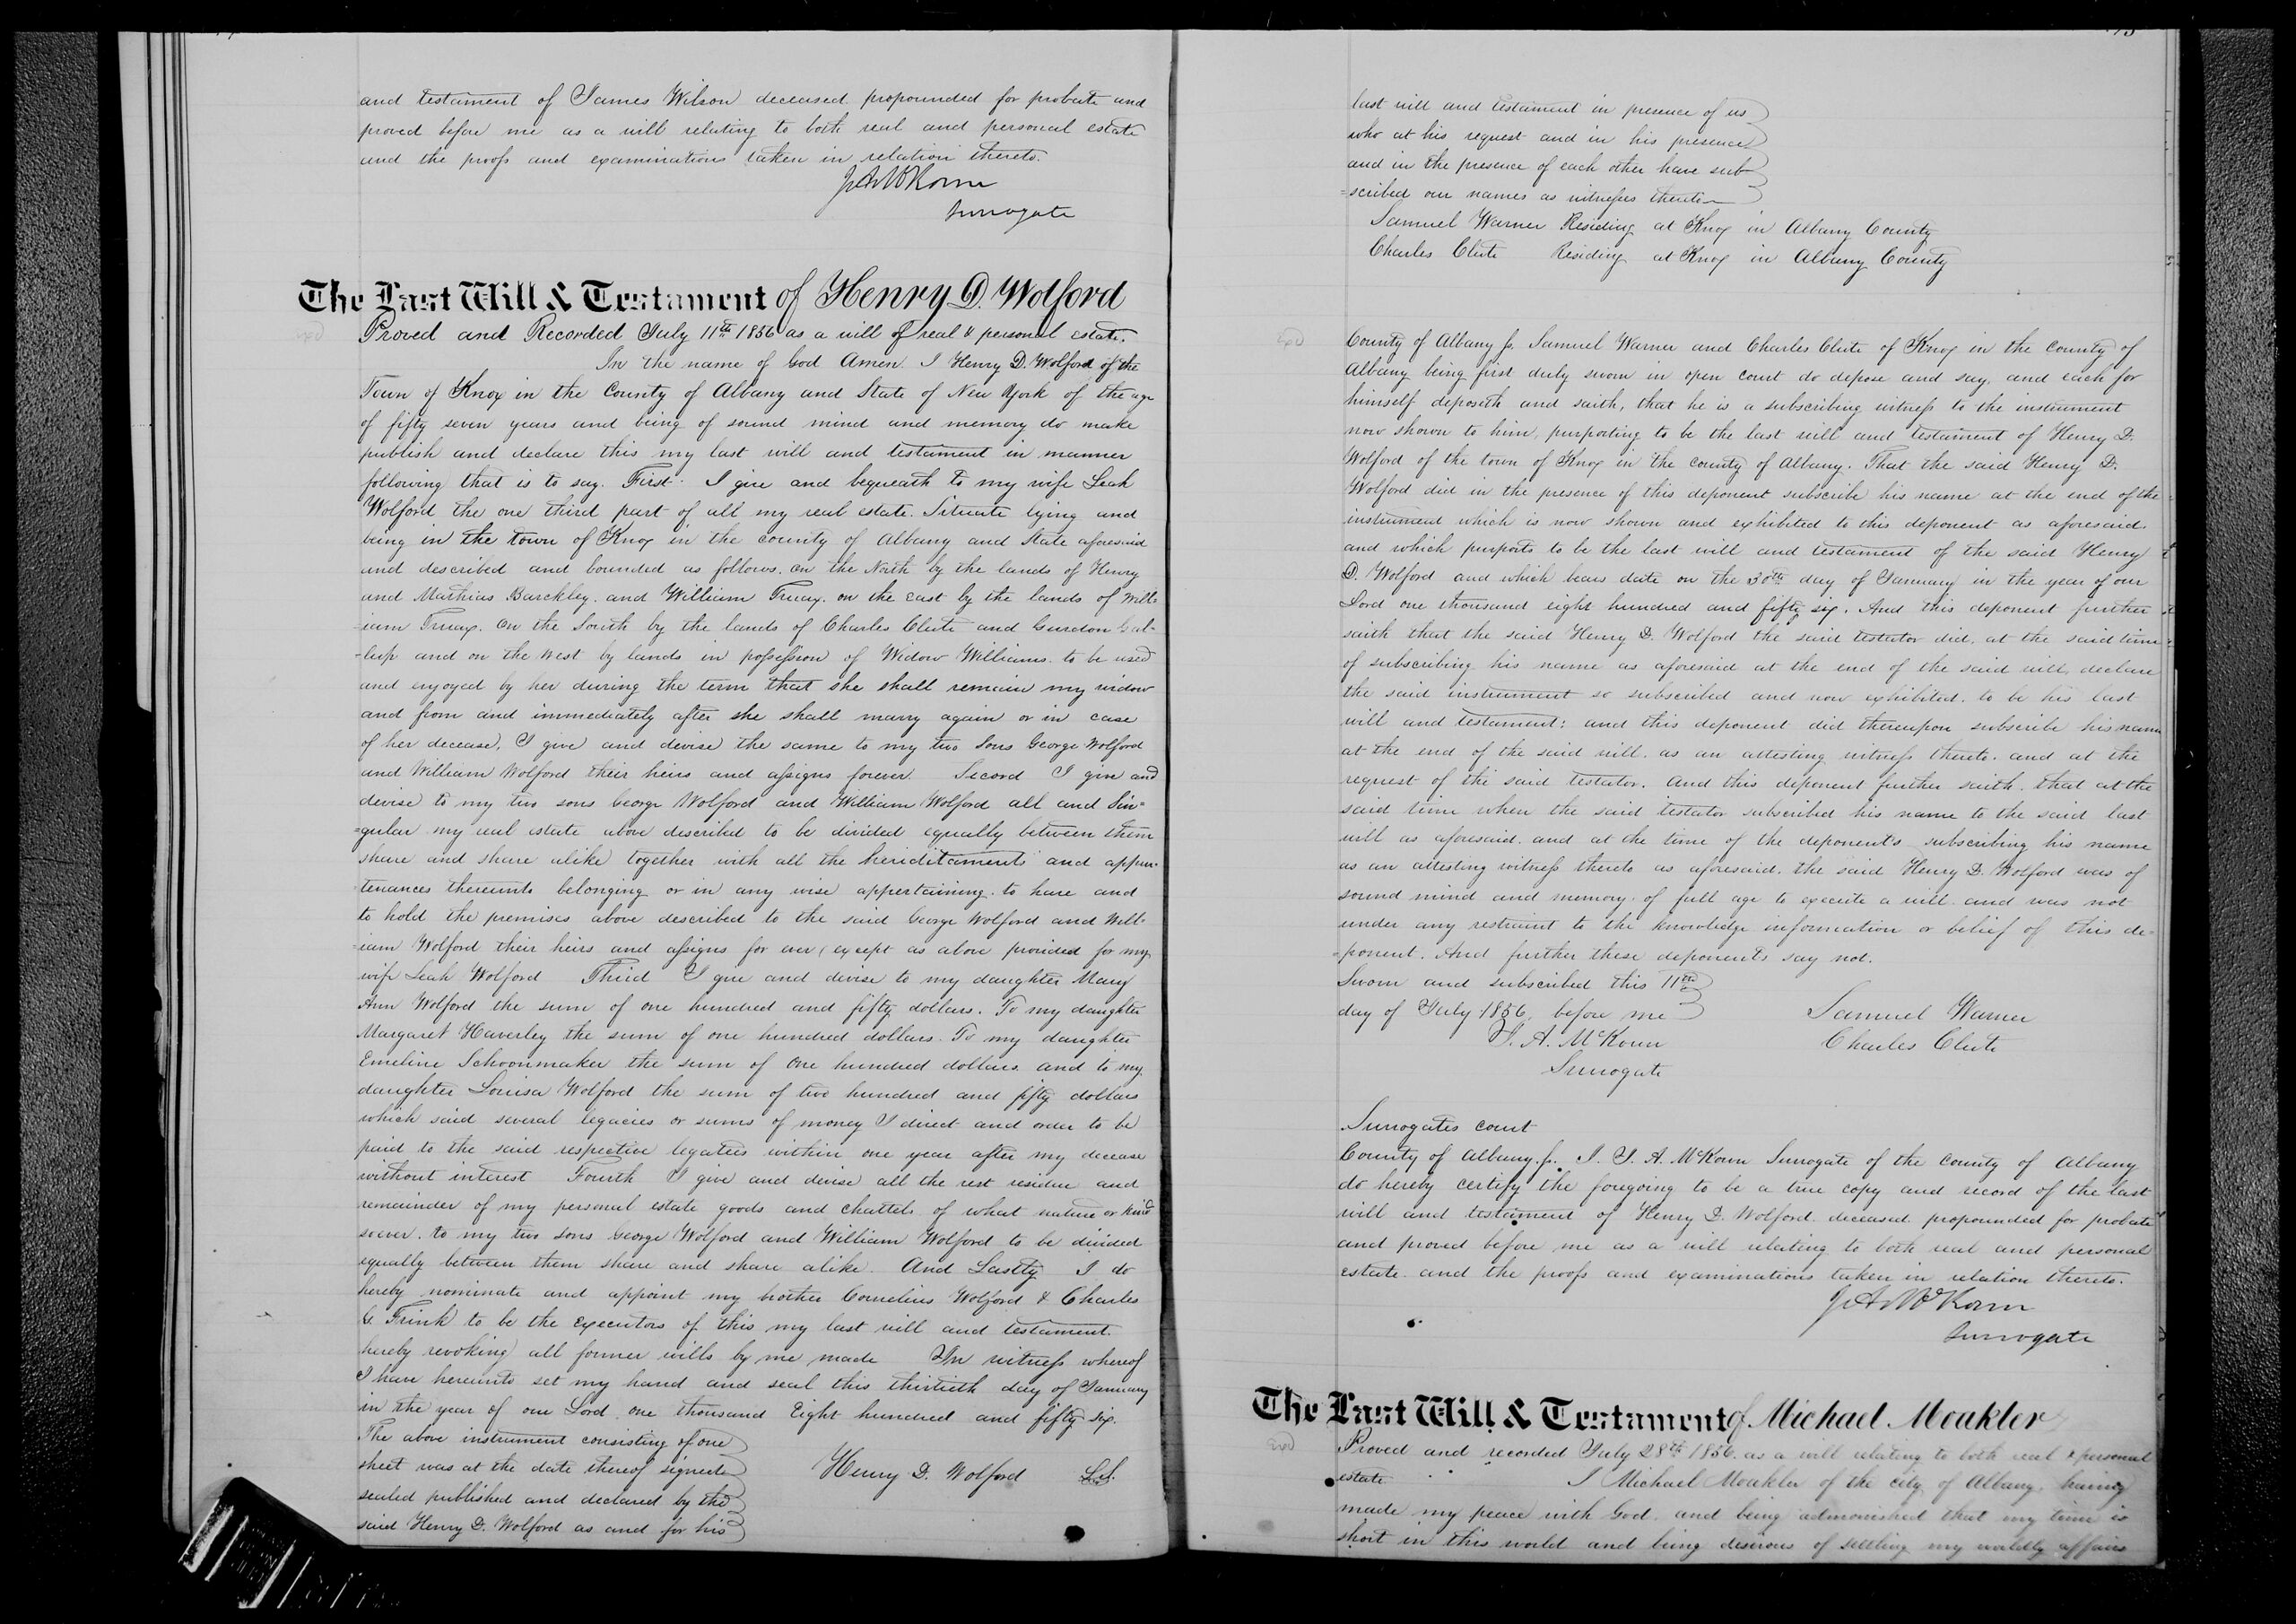 and testament of James Wilson deceased propounded for probate and
proved before me as a will relating to both real and personal estate
and the proofs and examinations taken in relation thereto.
J. A. McKown
Surrogate
The Last Will & Testament of Henry D. Wolford
Proved and Recorded July 11th 1856 as a will of real & personal estate.
In the name of God Amen. I Henry D. Wolford of the
Town of Knox in the County of Albany and State of New York of the age
of fifty seven years and being of sound mind and memory do make
publish and declare this my last will and testament in manner
following that is to say. First. I give and bequeath to my wife Leah
Wolford the one third part of all my real estate. Situate lying and
being in the town of Knox in the county of Albany and State aforesaid
and described and bounded as follows. on the North by the lands of Henry
and Mathias Barckley. and William Truax. on the east by the lands of Will=
=iam Truax. On the South by the lands of Charles Clute and Gurdon Gal-
-lup and on the West by lands in possession of Widow Williams. to be used
and enjoyed by her during the term that she shall remain my widow
and from and immediately after she shall marry again or in case
of her decease, I give and devise the same to my two Sons George Wolford
and William Wolford their heirs and assigns forever. Second I give and
devise to my two sons George Wolford and William Wolford all and Sin=
=gular my real estate above described to be divided equally between them
share and share alike together with all the hereditaments and appur-
tenances thereunto belonging or in any wise appertaining. to have and
to hold the premises above described to the said George Wolford and Will-
=iam Wolford their heirs and assigns for ever (except as above provided for my
wife Leah Wolford Third I give and devise to my daughter Mary
Ann Wolford the sum of one hundred and fifty dollars. To my daughter
Margaret Haverley the sum of one hundred dollars. To my daughter
Emeline Schoonmaker the sum of One hundred dollars. and to my
daughter Louisa Wolford the sum of two hundred and fifty dollars
which said several legacies or sums of money I direct and order to be
paid to the said respective legatees within one year after my decease
without interest Fourth I give and devise all the rest residue and
remainder of my personal estate goods and chattels of what nature or kind
soever. to my two sons George Wolford and William Wolford to be divided
equally between them share and share alike. And Lastly I do
hereby nominate and appoint my brother Cornelius Wolford & Charles
G. Frink to be the Executors of this my last will and testament.
hereby revoking all former wills by me made In witness whereof
I have hereunto set my hand and seal this thirtieth day of January
in the year of our Lord one thousand Eight hundred and fifty six.
The above instrument consisting of one
sheet was at the date thereof signed Henry D. Wolford L.S.
sealed published and declared by the
said Henry D. Wolford as and for his
last will and testament in presence of us
who at his request and in his presence
and in the presence of each other have sub
=scribed our names as witnesses thereto
Samuel Warner Residing at Knox in Albany County
Charles Clute Residing at Knox in Albany County
County of Albany ss. Samuel Warner and Charles Clute of Knox in the county of
Albany being first duly sworn in open court do depose and say, and each for
himself deposeth and saith, that he is a subscribing witness to the instrument
now shown to him, purporting to be the last will and testament of Henry D.
Wolford of the town of Knox in the county of Albany. That the said Henry D.
Wolford did in the presence of this deponent subscribe his name at the end of the
instrument which is now shown and exhibited to this deponent as aforesaid.
and which purports to be the last will and testament of the said Henry
D. Wolford and which bears date on the 30th day of January in the year of our
Lord one thousand eight hundred and fifty six. And this deponent further
saith that the said Henry D. Wolford the said testator did, at the said time
of subscribing his name as aforesaid at the end of the said will, declare
the said instrument so subscribed and now exhibited. to be his last
will and testament: and this deponent did thereupon subscribe his name
at the end of the said will. as an attesting witness thereto. and at the
request of the said testator. And this deponent further saith. that at the
said time when the said testator subscribed his name to the said last
will as aforesaid. and at the time of the deponent's subscribing his name
as an attesting witness thereto as aforesaid. the said Henry D. Wolford was of
sound mind and memory. of full age to execute a will. and was not
under any restraint to the knowledge information or belief of this de-
=ponent. And further these deponents say not.
Sworn and subscribed this 11th
day of July 1856, before me Samuel Warner
J. A. McKown Charles Clute
Surrogate
Surrogates court
County of Albany ss. I. J. A. McKown Surrogate of the county of Albany
do hereby certify the foregoing to be a true copy and record of the last
will and testament of Henry D. Wolford. deceased propounded for probate
and proved before me as a will relating to both real and personal
estate. and the proofs and examinations taken in relation thereto.
J. A. McKown
Surrogate
The Last Will & Testament of Michael Moakler
Proved and recorded July 28th 1856. as a will relating to both real & personal
estate I Michael Moakler of the city of Albany. having
made my peace with God. and being admonished that my time is
short in this world and being desirous of settling my worldly affairs